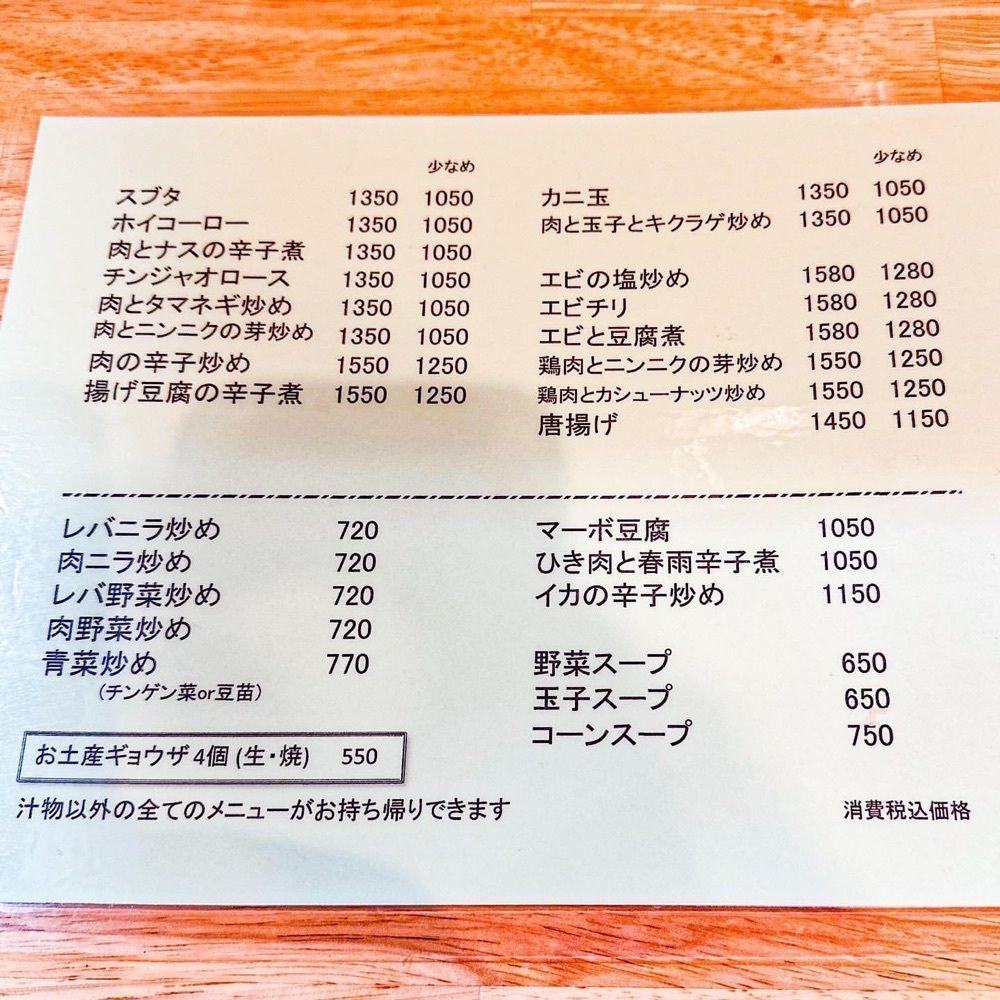 少なめ
スブタ 1350 1050
ホイコーロー 1350 1050
肉とナスの辛子煮 1350 1050
チンジャオロース 1350 1050
肉とタマネギ炒め 1350 1050
肉とニンニクの芽炒め 1350 1050
肉の辛子炒め 1550 1250
揚げ豆腐の辛子煮 1550 1250
少なめ
カニ玉 1350 1050
肉と玉子とキクラゲ炒め 1350 1050
エビの塩炒め 1580 1280
エビチリ 1580 1280
エビと豆腐煮 1580 1280
鶏肉とニンニクの芽炒め 1550 1250
鶏肉とカシューナッツ炒め 1550 1250
唐揚げ 1450 1150
レバニラ炒め 720
肉ニラ炒め 720
レバ野菜炒め 720
肉野菜炒め 720
青菜炒め 770
（チンゲン菜or豆苗）
マーボ豆腐 1050
ひき肉と春雨辛子煮 1050
イカの辛子炒め 1150
野菜スープ 650
玉子スープ 650
コーンスープ 750
お土産ギョウザ 4個 (生・焼) 550
汁物以外の全てのメニューがお持ち帰りできます
消費税込価格